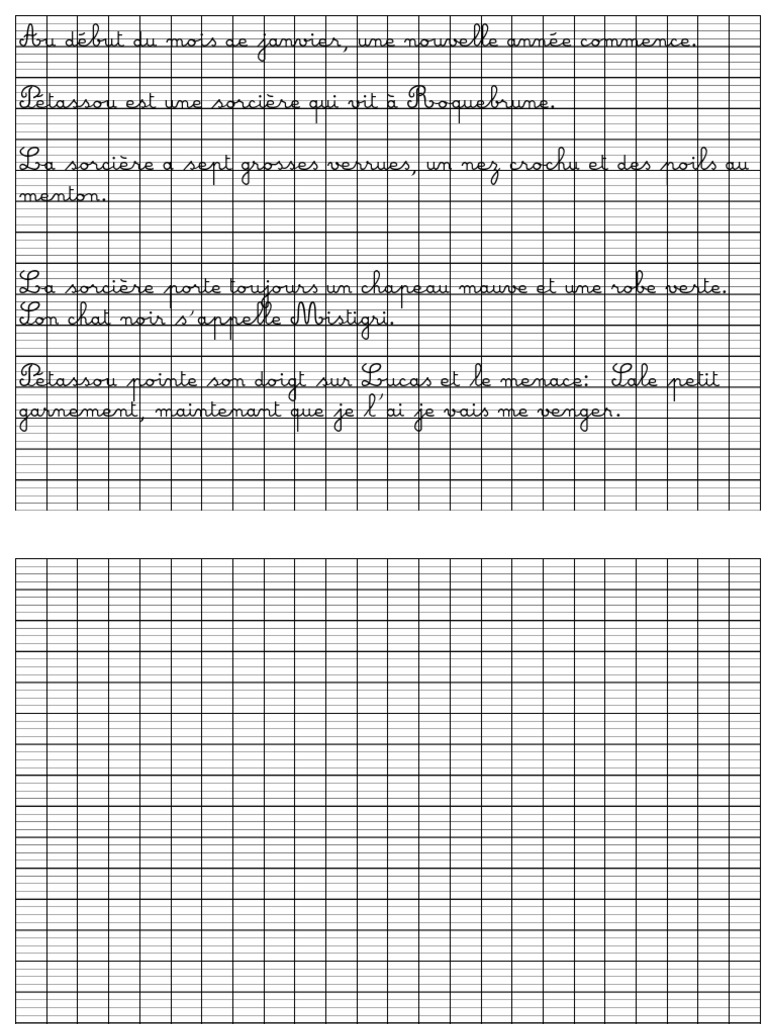 Au début du mois de janvier, une nouvelle année commence.
Pétassou est une sorcière qui vit à Roquebrune.
La sorcière a sept grosses verrues, un nez crochu et des poils au
menton.
La sorcière porte toujours un chapeau mauve et une robe verte.
Son chat noir s'appelle Mistigri.
Pétassou pointe son doigt sur Lucas et le menace: Sale petit
garnement, maintenant que je l'ai je vais me venger.